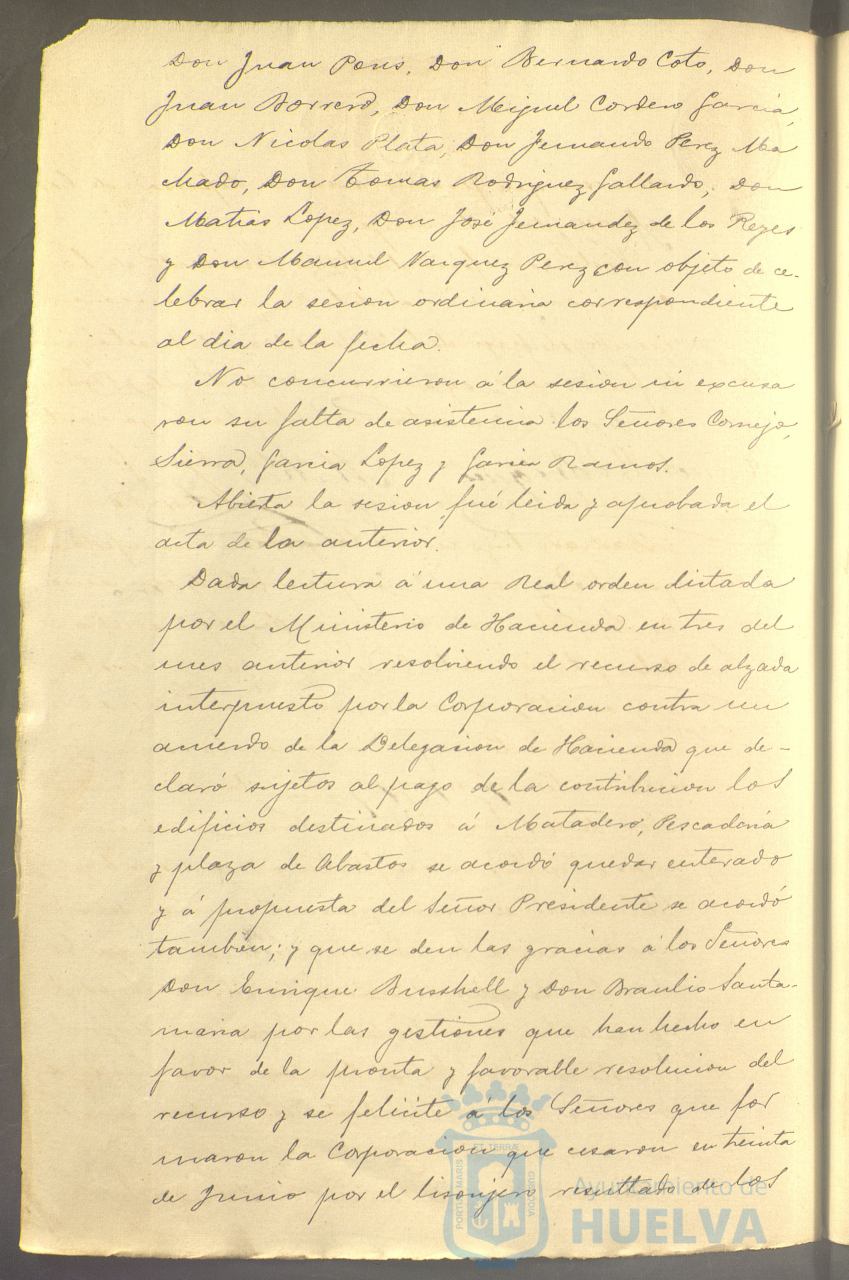 Don Juan Pons, Don Bernardo Coto, Don
Juan Borrero, Don Miguel Cordero Garcia,
Don Nicolas Plata, Don Fernando Perez Ma
chado, Don Tomas Rodriguez Gallardo, Don
Matias Lopez, Don José Fernandez de los Reyes
y Don Manuel Vazquez Perez con objeto de ce-
lebrar la sesion ordinaria correspondiente
al dia de la fecha.
No concurrieron á la sesion ni excusa
ron su falta de asistencia los Señores Cornejo,
Sierra, Garcia Lopez y Garcia Ramos.
Abierta la sesion fué leida y aprobada el
acta de la anterior.
Dada lectura á una Real orden dictada
por el Ministerio de Hacienda en tres del
mes anterior resolviendo el recurso de alzada
interpuesto por la Corporacion contra un
acuerdo de la Delegacion de Hacienda que de-
claró sujetos al pago de la contribucion los
edificios destinados á Matadero, Pescaderia
y plaza de Abastos se acordó quedar enterado
y á propuesta del Señor Presidente se acordó
tambien; y que se den las gracias á los Señores
Don Enrique Busshell y Don Braulio Santa-
maria por las gestiones que han hecho en
favor de la pronta y favorable resolucion del
recurso y se felicite á los Señores que for
maron la Corporacion que cesaron en treinta
de Junio por el lisonjero resultado de los
PORTUS MARIS ET TERRÆ CUSTODIA
Ayuntamiento de
HUELVA